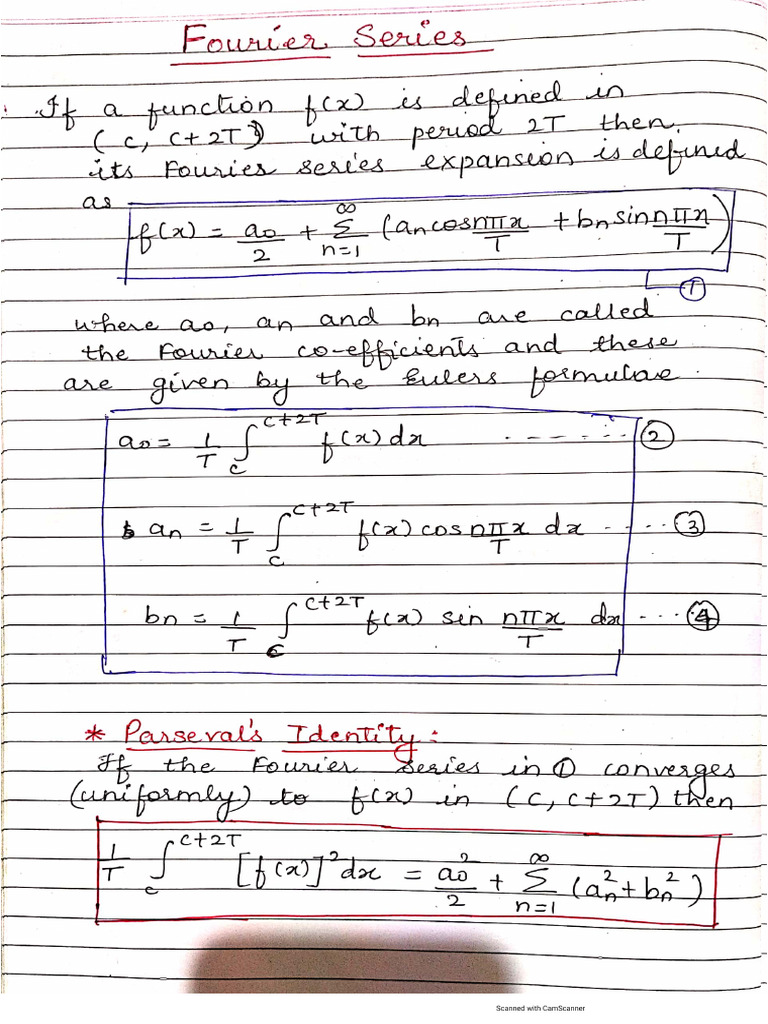 Fourier Series
If a function f(x) is defined in
(c, c+2T) with period 2T then
its Fourier series expansion is defined
as
f(x) = a₀/2 + ∑_{n=1}^{∞} (aₙ cos nπx/T + bₙ sin nπx/T)
①
where a₀, aₙ and bₙ are called
the Fourier co-efficients and these
are given by the Eulers formulae
a₀ = 1/T ∫_c^{c+2T} f(x) dx ------- ②
aₙ = 1/T ∫_c^{c+2T} f(x) cos nπx/T dx ---- ③
bₙ = 1/T ∫_c^{c+2T} f(x) sin nπx/T dx ---- ④
* Parseval's Identity :
If the Fourier Series in ① converges
(uniformly) to f(x) in (c, c+2T) then
1/T ∫_c^{c+2T} [f(x)]² dx = a₀²/2 + ∑_{n=1}^{∞} (aₙ² + bₙ²)
Scanned with CamScanner